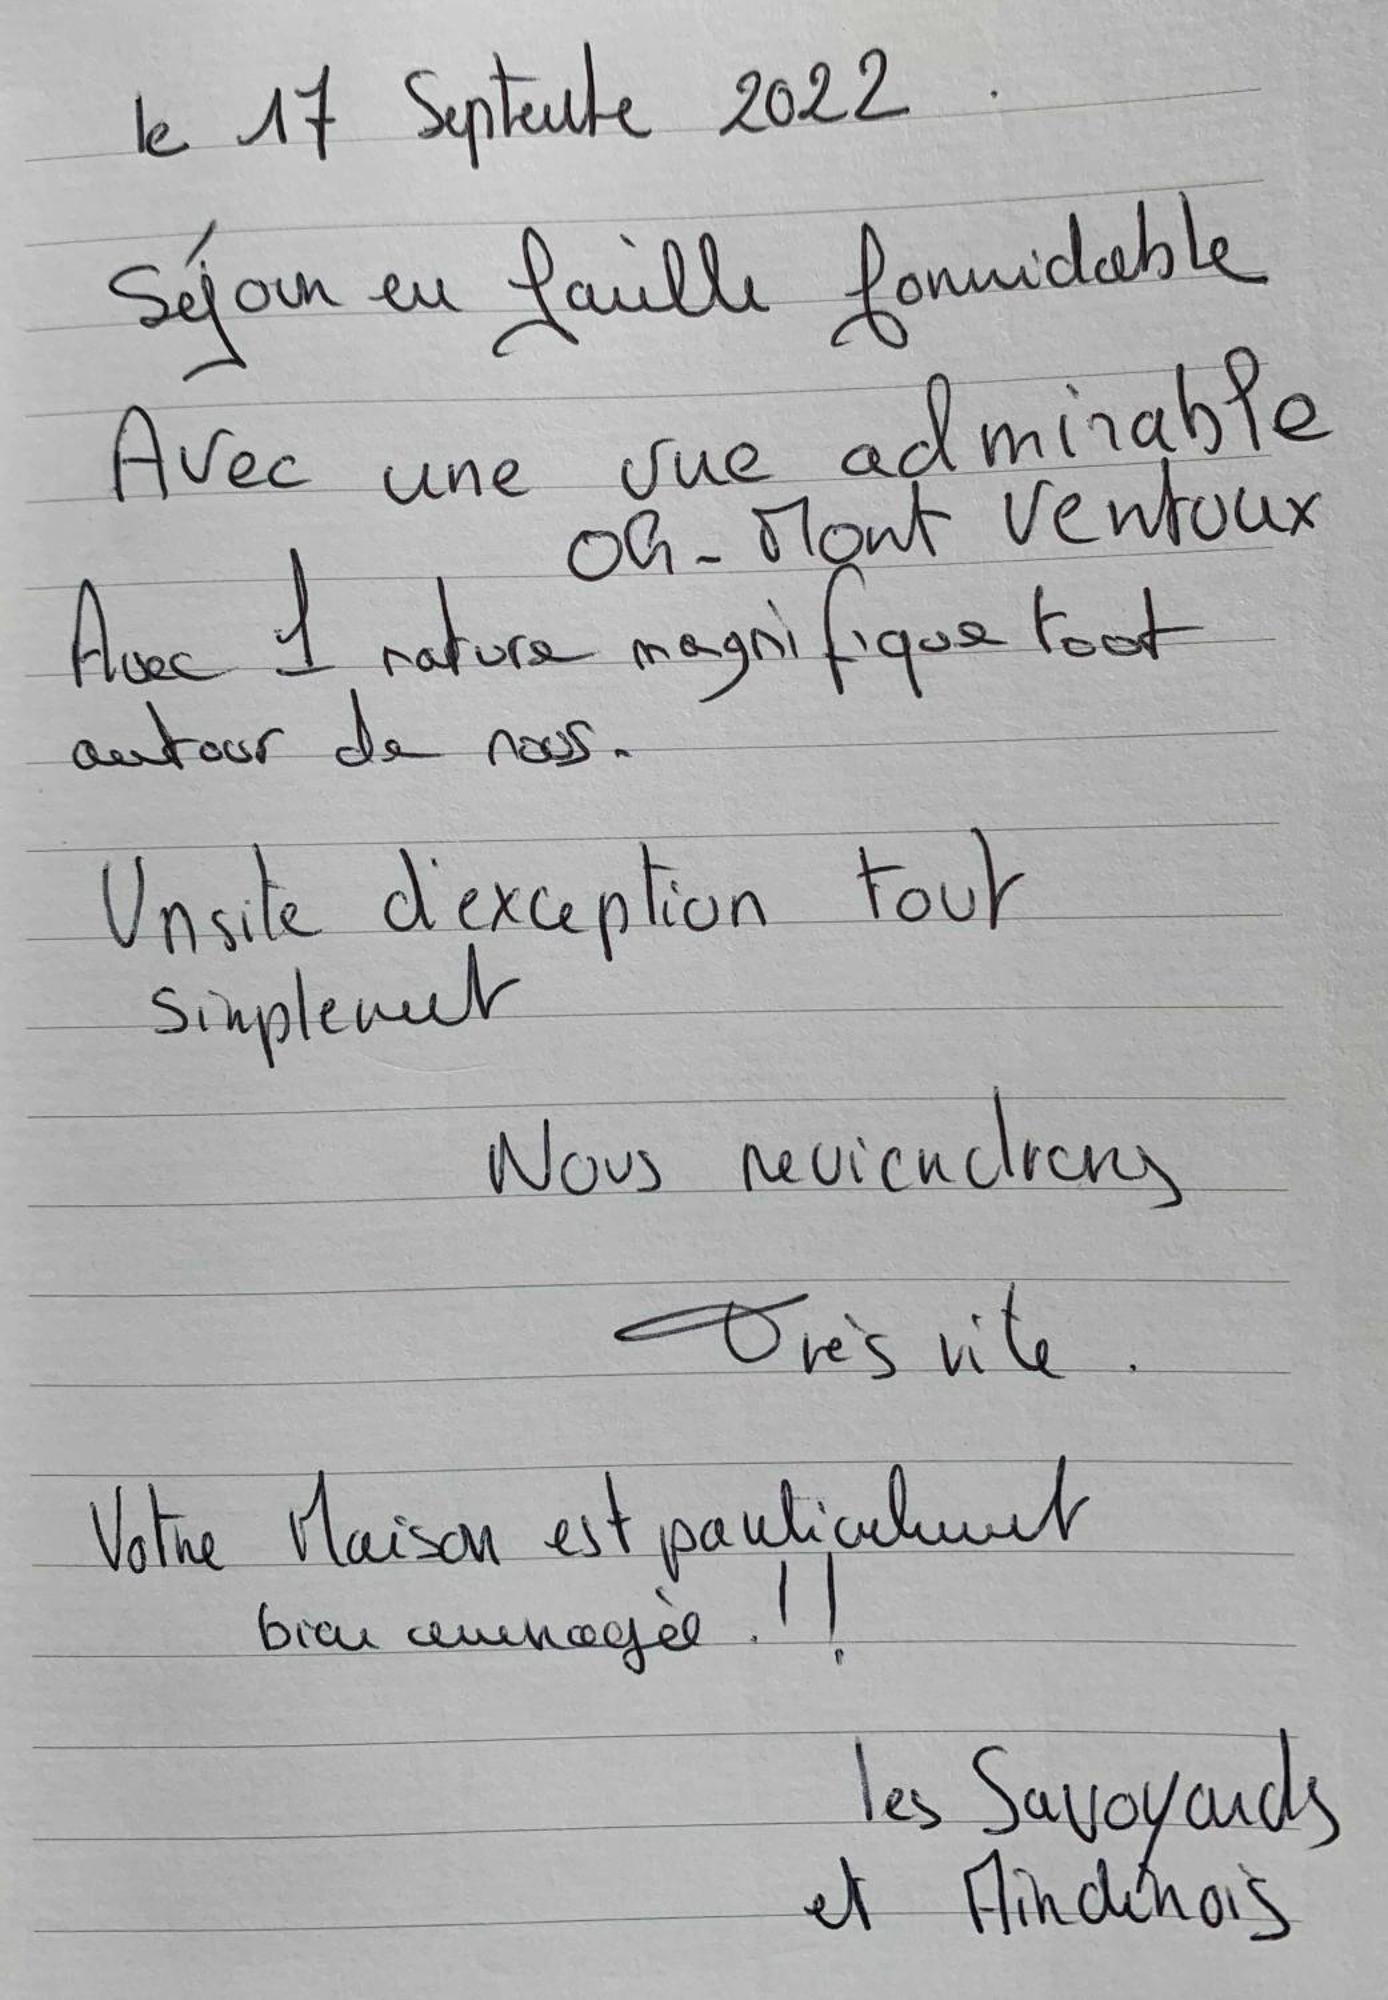 le 17 Septembre 2022.
Séjour en famille formidable
Avec une vue admirable
Mont Ventoux
Avec 1 nature magnifique tout
autour de nous.
Un site d'exception tout
simplement
Nous reviendrons
Très vite.
Votre Maison est particulièrement
bien aménagée.!!
les Savoyards
et